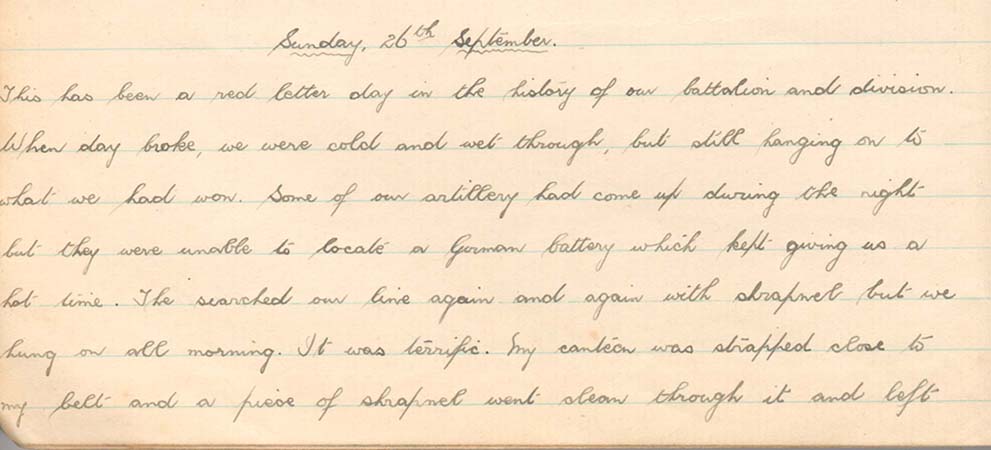 Sunday, 26th September.
This has been a red letter day in the history of our battalion and division.
When day broke, we were cold and wet through, but still hanging on to
what we had won. Some of our artillery had come up during the night
but they were unable to locate a German battery which kept giving us a
hot time. The searched our line again and again with shrapnel but we
hung on all morning. It was terrific. My canteen was strapped close to
my belt and a piece of shrapnel went clean through it and left